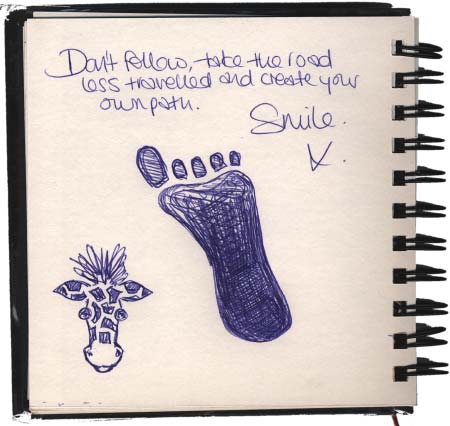 Don't follow, take the road
less travelled and create your
own path.
Smile.
V.